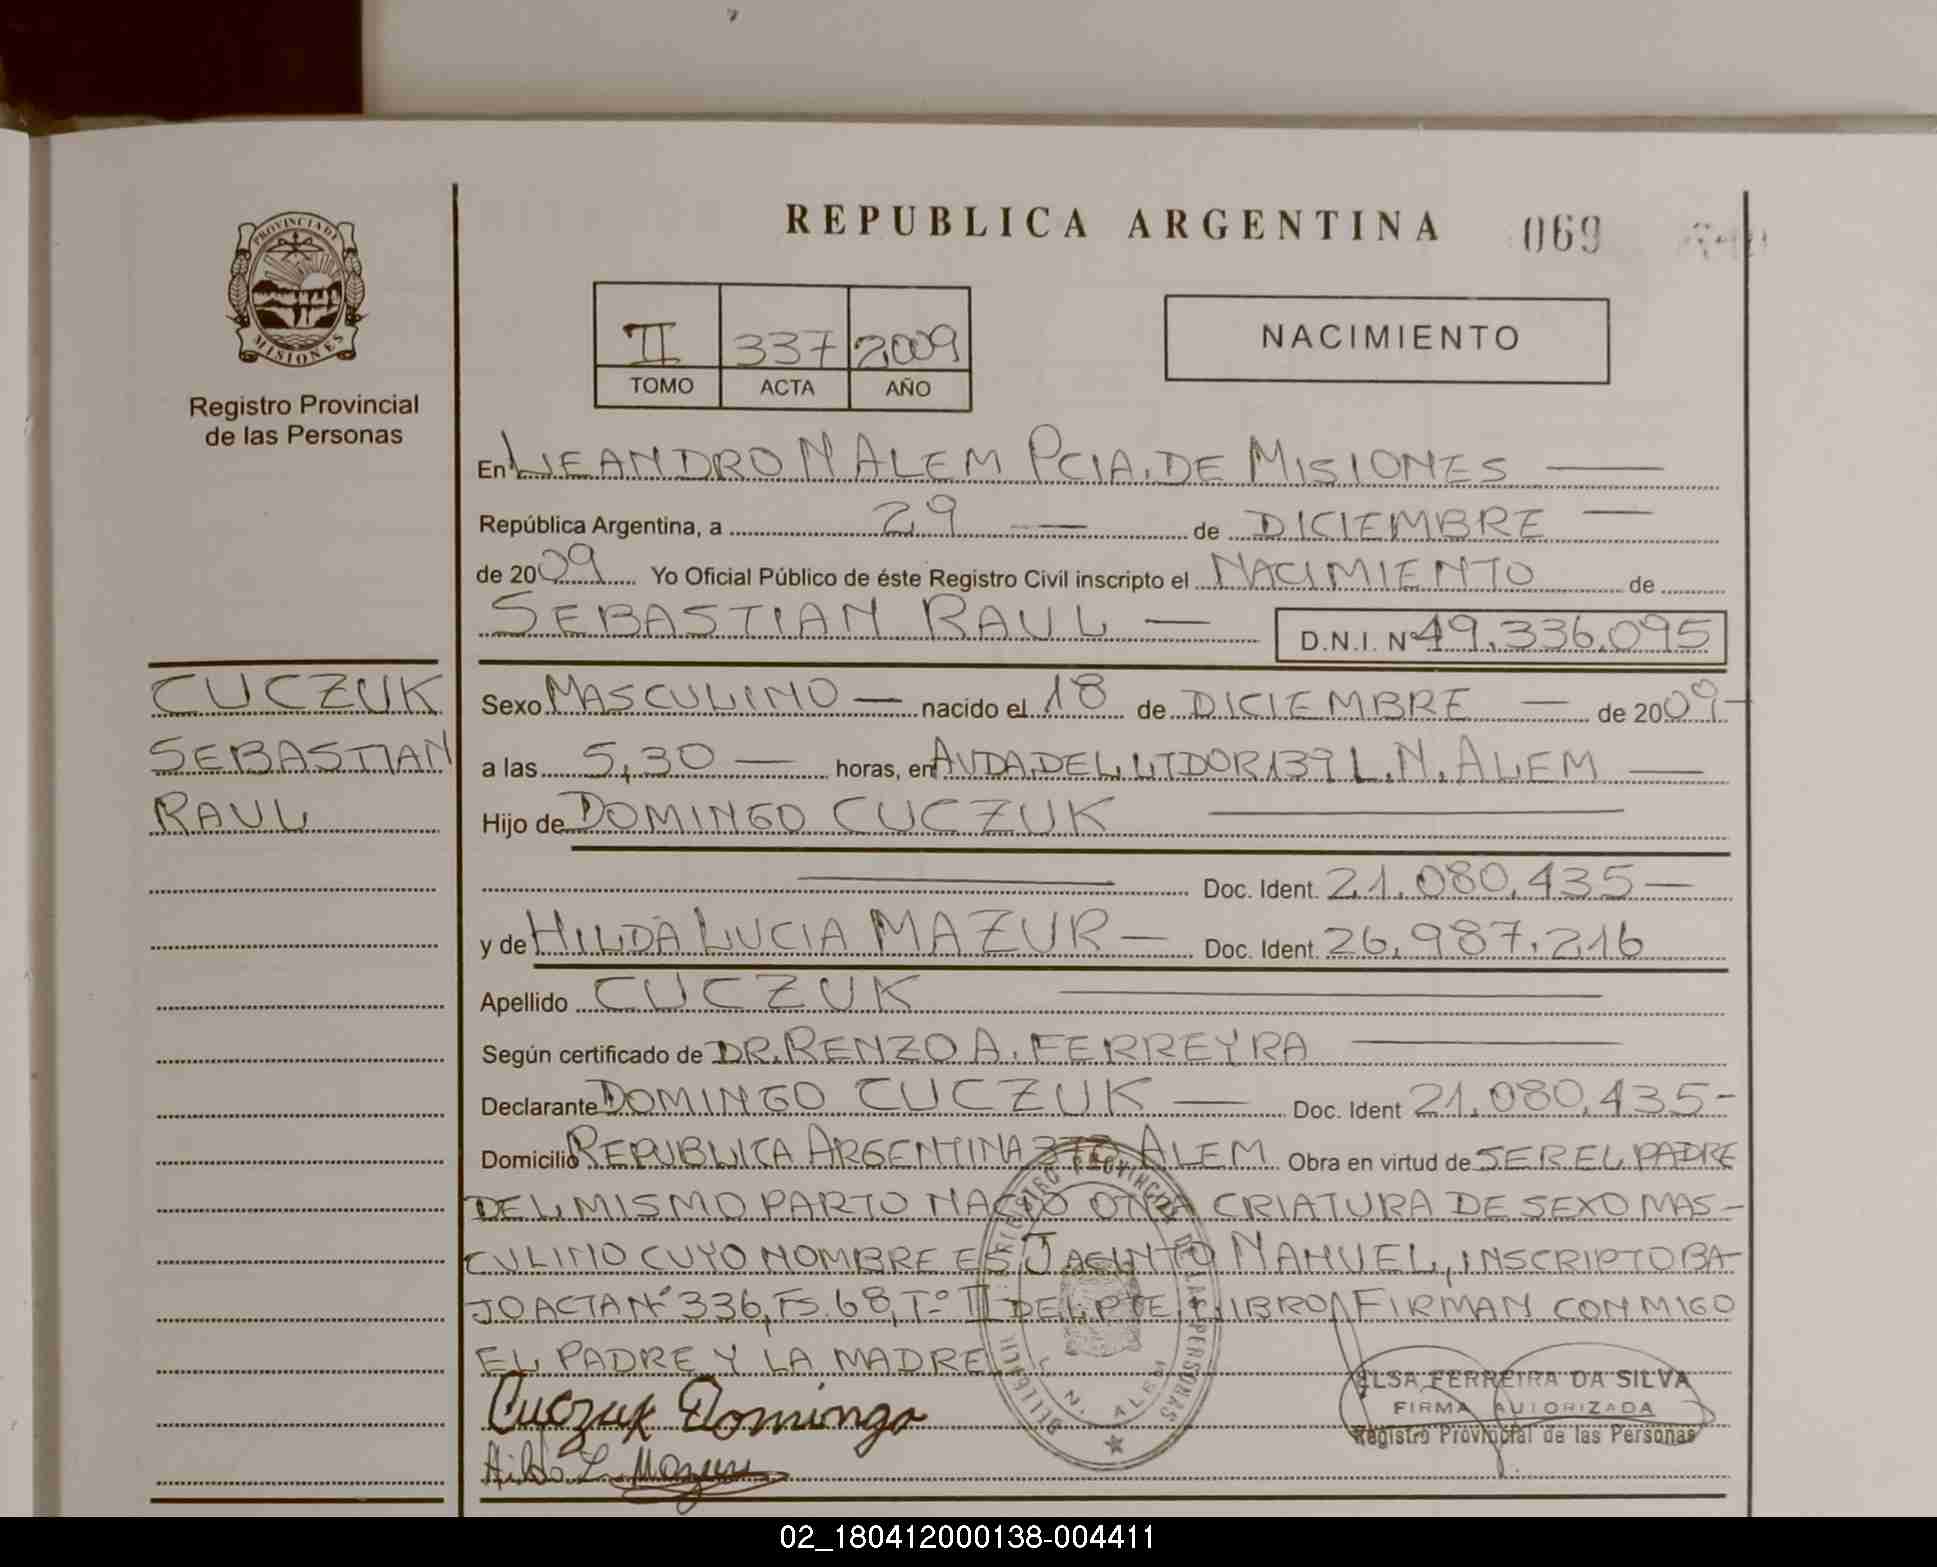 REPUBLICA ARGENTINA 069
PROVINCIA DE
MISIONES
Registro Provincial
de las Personas
II 337 2009
TOMO ACTA AÑO
NACIMIENTO
En LEANDRO N ALEM PCIA. DE MISIONES
República Argentina, a 29 de DICIEMBRE
de 2009 Yo Oficial Público de éste Registro Civil inscripto el NACIMIENTO de
SEBASTIAN RAUL — D.N.I. Nº 49.336.095
CUCZUK
SEBASTIAN
RAUL
Sexo MASCULINO — nacido el 18 de DICIEMBRE — de 2009-
a las 5,30 — horas, en AVDA. DEL LIDOR 139 L.N. ALEM —
Hijo de DOMINGO CUCZUK
Doc. Ident. 21.080.435—
y de HILDA LUCIA MAZUR — Doc. Ident. 26.987.216
Apellido CUCZUK
Según certificado de DR. RENZO A. FERREYRA
Declarante DOMINGO CUCZUK — Doc. Ident 21.080.435-
Domicilio REPUBLICA ARGENTINA ALEM Obra en virtud de SER EL PADRE
DEL MISMO PARTO NACIO OTRA CRIATURA DE SEXO MAS-
CULINO CUYO NOMBRE ES JACINTO NAHUEL, INSCRIPTO BA-
JO ACTA Nº 336, FS. 68, Tº II DEL PTE LIBRO FIRMAN CONMIGO
EL PADRE Y LA MADRE
Cuczuk Domingo
Hilda L Mazur
REGISTRO PROVINCIAL DE LAS PERSONAS
L. N. ALEM
ELSA FERREIRA DA SILVA
FIRMA AUTORIZADA
Registro Provincial de las Personas
02_180412000138-004411